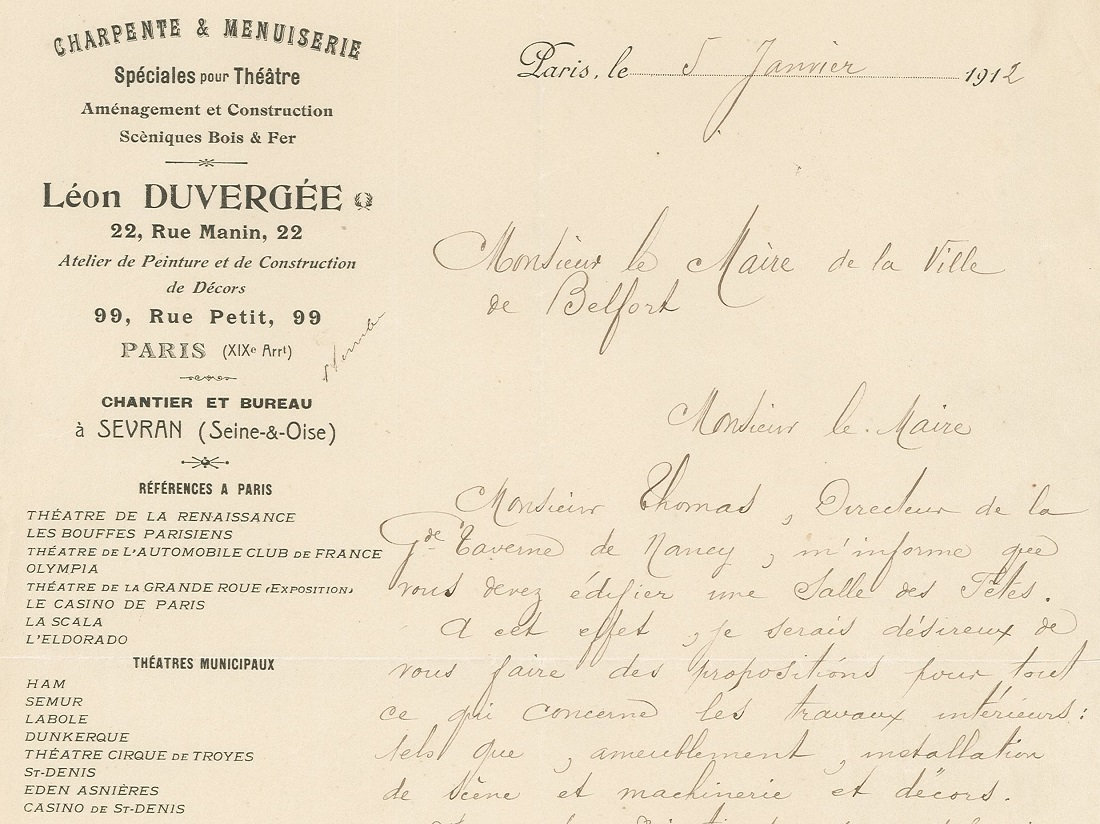 CHARPENTE & MENUISERIE
Spéciales pour Théâtre
Aménagement et Construction
Scèniques Bois & Fer
Léon DUVERGÉE
22, Rue Manin, 22
Atelier de Peinture et de Construction
de Décors
99, Rue Petit, 99
PARIS (XIXe Arrt)
CHANTIER ET BUREAU
à SEVRAN (Seine-&-Oise)
RÉFÉRENCES A PARIS
THÉATRE DE LA RENAISSANCE
LES BOUFFES PARISIENS
THÉATRE DE L'AUTOMOBILE CLUB DE FRANCE
OLYMPIA
THÉATRE DE LA GRANDE ROUE (EXPOSITION)
LE CASINO DE PARIS
LA SCALA
L'ELDORADO
THÉATRES MUNICIPAUX
HAM
SEMUR
LABOLE
DUNKERQUE
THÉATRE CIRQUE DE TROYES
ST-DENIS
EDEN ASNIÈRES
CASINO DE ST-DENIS
Paris, le 5 Janvier 1912
Monsieur le Maire de la Ville
de Belfort
Monsieur le Maire
Monsieur Thomas, Directeur de la
Gde Taverne de Nancy, m'informe que
vous devez édifier une Salle des Fêtes.
A cet effet, je serais désireux de
vous faire des propositions pour tout
ce qui concerne les travaux intérieurs:
tels que, ameublement, installation
de scène et machinerie et décors.